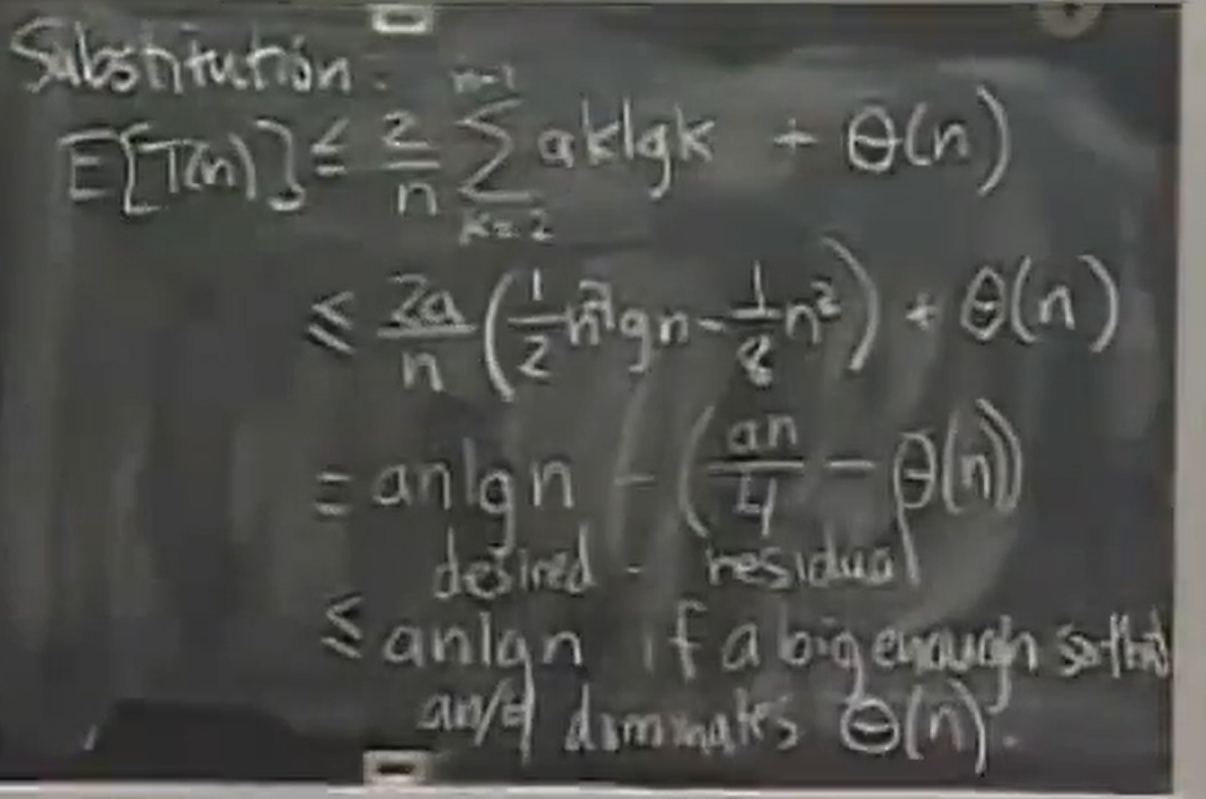 Substitution:
E[T(n)] ≤ 2/n ∑_{k=2}^{n-1} ak lg k + Θ(n)
≤ 2a/n (1/2 n² lg n - 1/8 n²) + Θ(n)
= an lg n - (an/4 - Θ(n))
desired - residual
≤ an lg n if a big enough so that
an/4 dominates Θ(n).